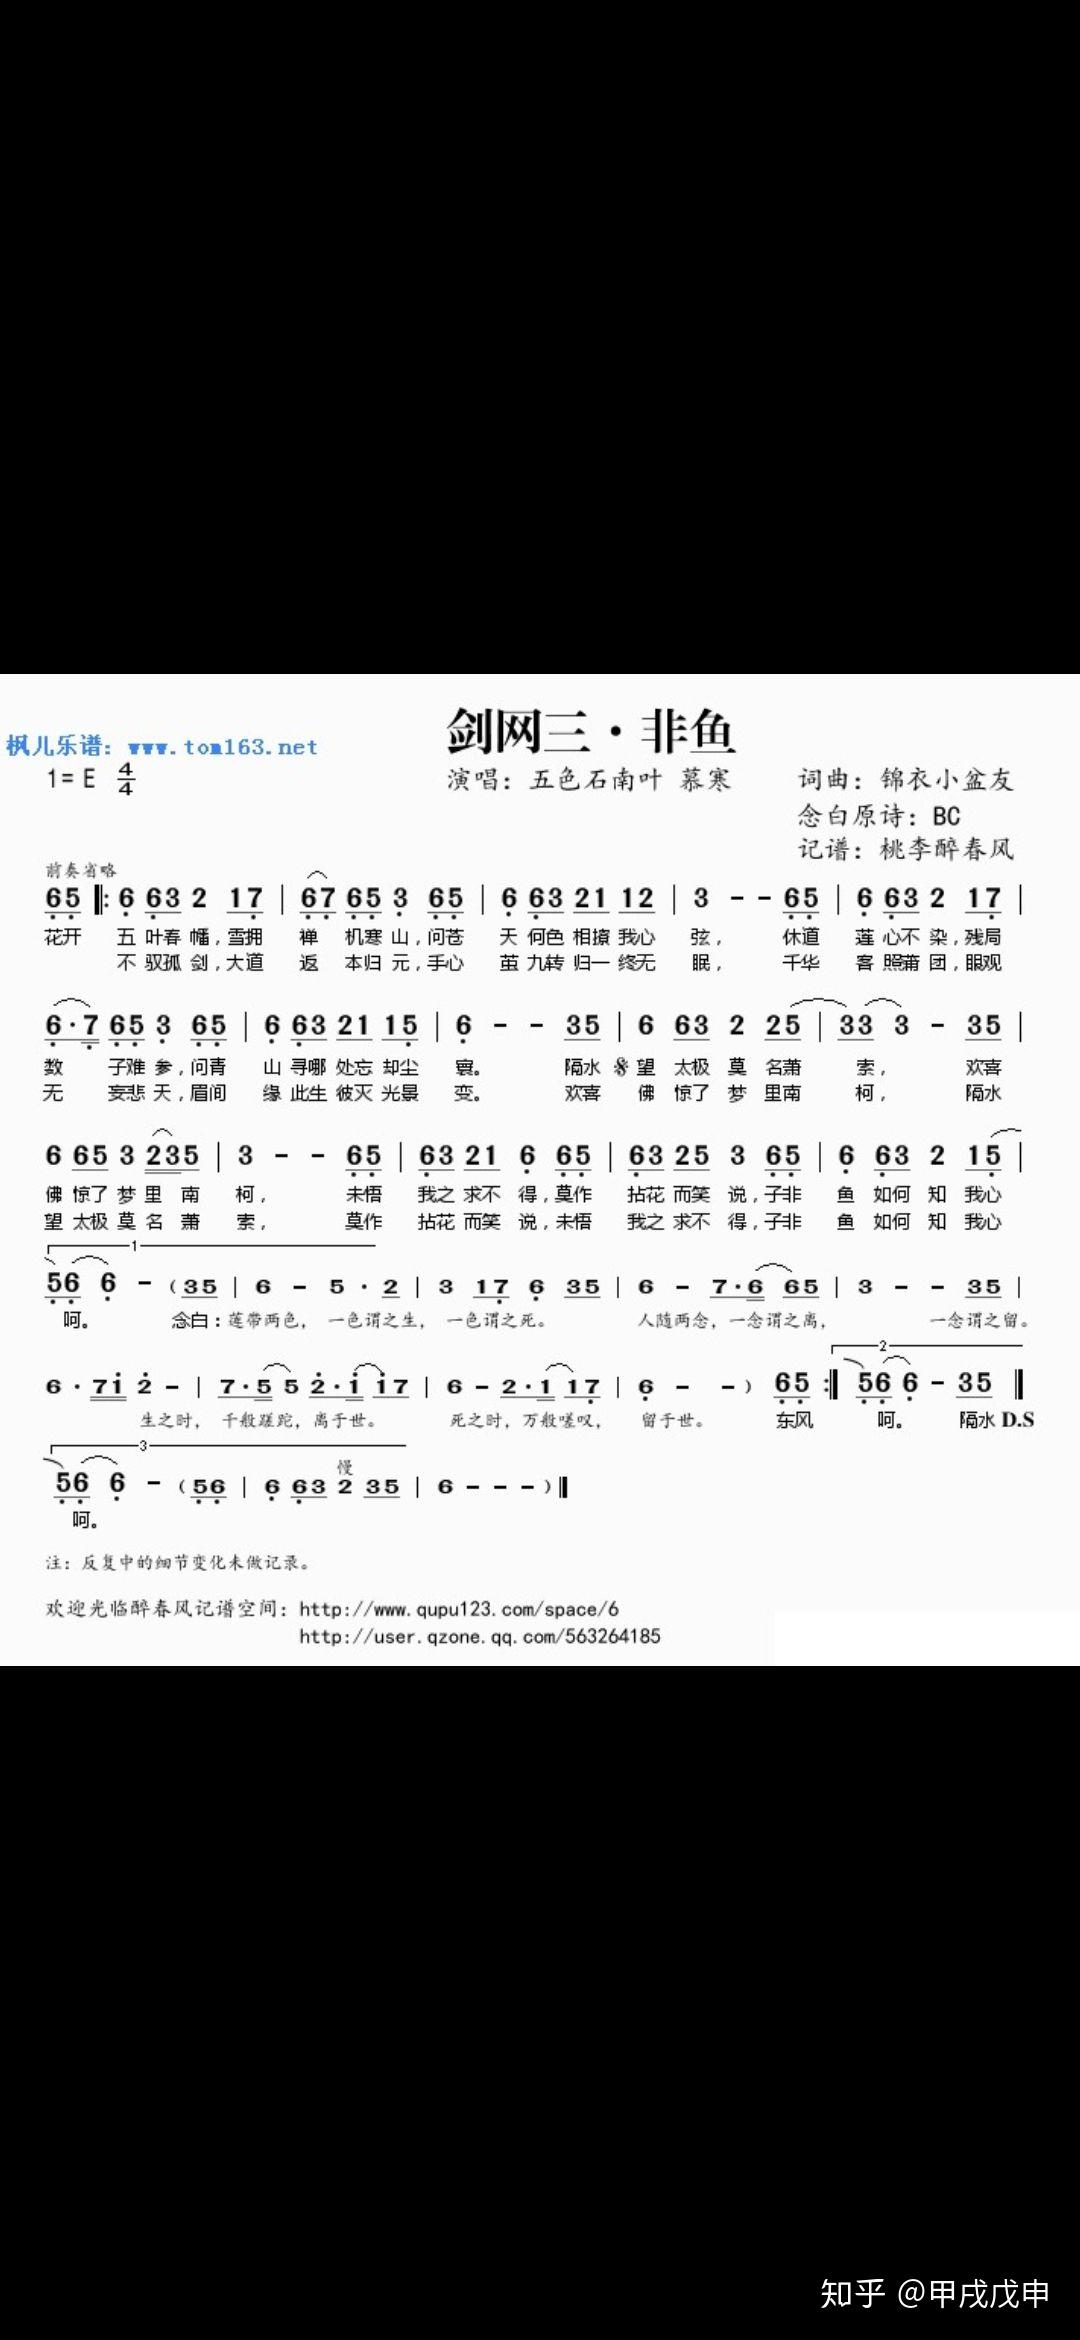 剑网三·非鱼
枫儿乐谱：www.tom163.net
1=E 4/4
演唱：五色石南叶 慕寒
词曲：锦衣小盆友
念白原诗：BC
记谱：桃李醉春风
前奏省略
65 ‖: 6 63 2 17 | 67 65 3 65 | 6 63 21 12 | 3 - - 65 | 6 63 2 17 |
花开 五 叶春 幡，雪拥 禅 机寒 山，问苍 天 何色 相撩 我心 弦， 休道 莲 心不 染，残局
不 驭孤 剑，大道 返 本归 元，手心 茧 九转 归一 终无 眠， 千华 客 照莆 团，眼观
6·7 65 3 65 | 6 63 21 15 | 6 - - 35 | 6 63 2 25 | 33 3 - 35 |
数 子难 参，问青 山 寻哪 处忘 却尘 寰。 隔水 𝄋 望 太极 莫 名萧 索， 欢喜
无 妄悲 天，眉间 缘 此生 彼灭 光景 变。 欢喜 佛 惊了 梦 里南 柯， 隔水
6 65 3 235 | 3 - - 65 | 63 21 6 65 | 63 25 3 65 | 6 63 2 15 |
佛 惊了 梦 里 南 柯， 未悟 我之 求不 得，莫作 拈花 而笑 说，子非 鱼 如何 知 我心
望 太极 莫 名 萧 索， 莫作 拈花 而笑 说，未悟 我之 求不 得，子非 鱼 如何 知 我心
1
56 6 - (35 | 6 - 5 · 2 | 3 17 6 35 | 6 - 7·6 65 | 3 - - 35 |
呵。 念白：莲带两色， 一色谓之生， 一色谓之死。 人随两念，一念谓之离， 一念谓之留。
2
6 · 71 2 - | 7·5 5 2·1 17 | 6 - 2·1 17 | 6 - -) 65 :‖ 56 6 - 35 ‖
生之时， 千般蹉跎，离于世。 死之时，万般嗟叹， 留于世。 东风 呵。 隔水 D.S
3
慢
56 6 - (56 | 6 63 2 35 | 6 - - -)‖
呵。
注：反复中的细节变化未做记录。
欢迎光临醉春风记谱空间：http://www.qupu123.com/space/6
http://user.qzone.qq.com/563264185
知乎 @甲戌戊申